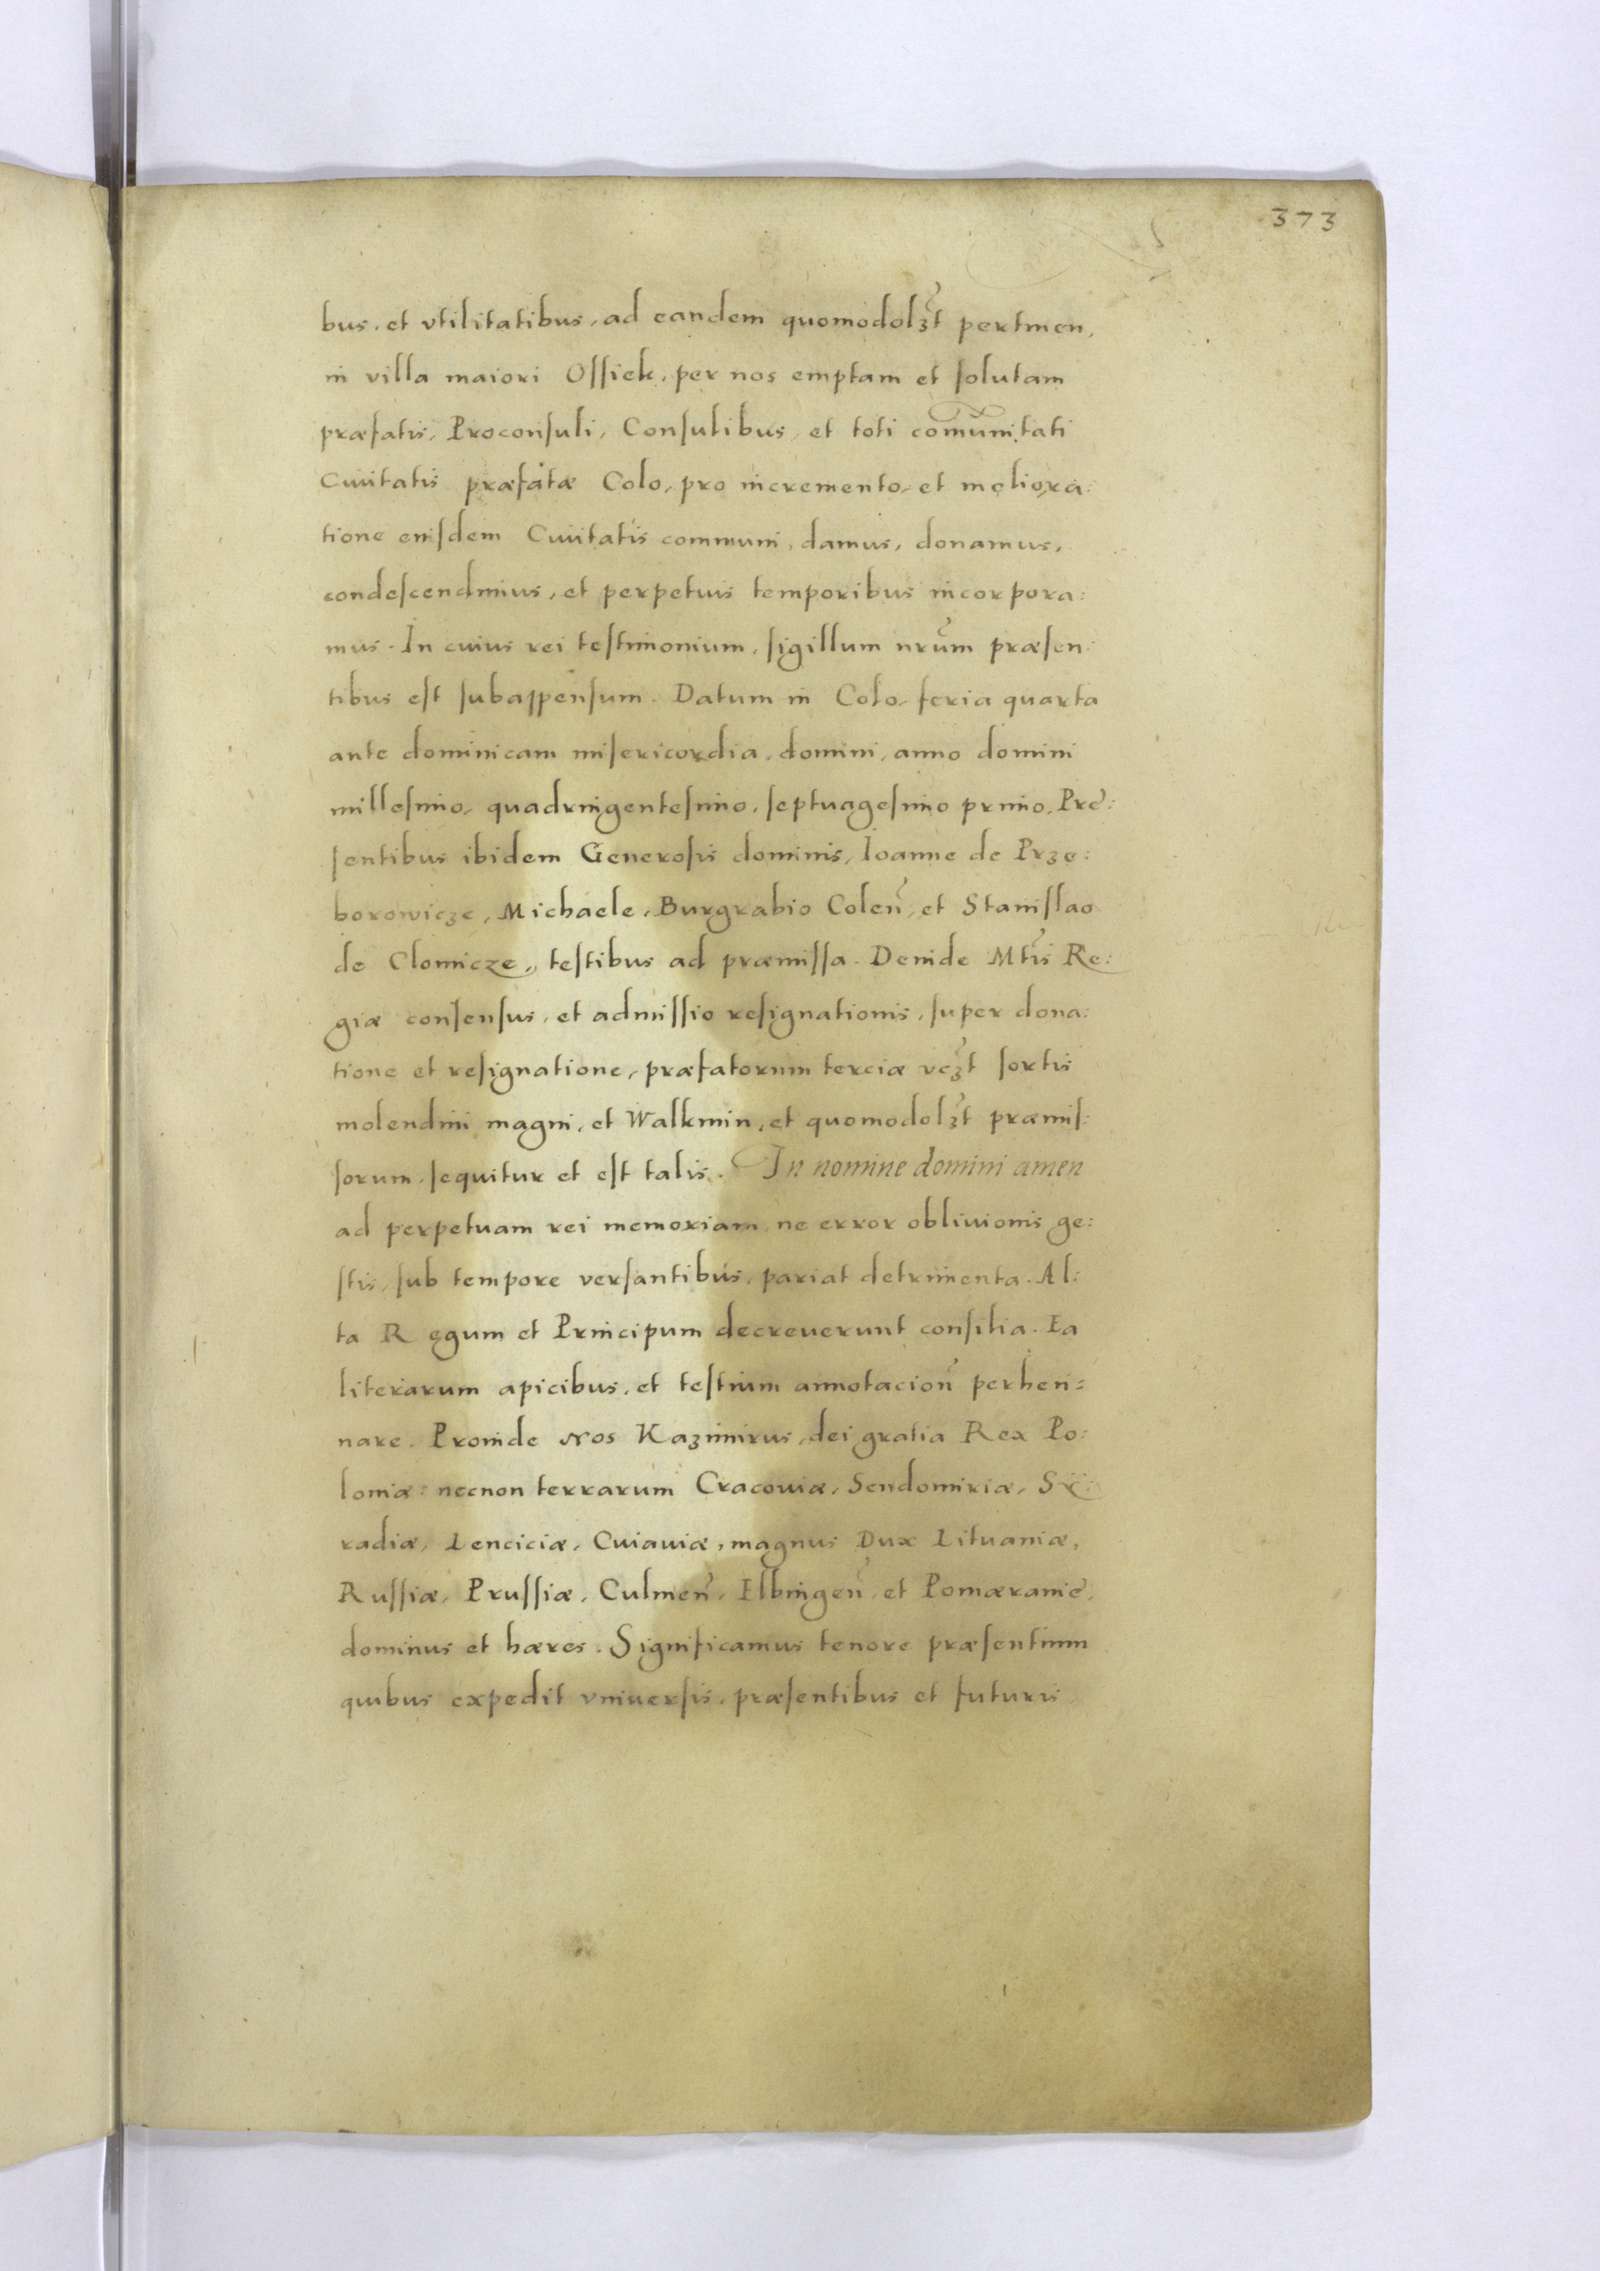 373
bus, et vtilitatibus, ad eandem quomodolʒt pertinen,
in villa maiori Ossiek, per nos emptam et solutam
præfatis, Proconsuli, Consulibus, et toti com̃unitati
Ciuitatis præfatæ Colo, pro incremento, et meliora:
tione eiusdem Ciuitatis communi, damus, donamus,
condescendimus, et perpetuis temporibus incorpora:
mus. In cuius rei testimonium, sigillum nrũm præsen:
tibus est subappensum. Datum in Colo, feria quarta
ante dominicam misericordia, domini, anno domini
millesimo, quadringentesimo, septuagesimo primo, Pre:
sentibus ibidem Generosis dominis, Ioanne de Prze:
borowicze, Michaele, Burgrabio Coleñ, et Stanislao
de Clomicze, testibus ad præmissa. Deinde Mtis Re:
giæ consensus, et admissio resignationis, super dona:
tione et resignatione, præfatorum terciæ vcʒt sortis
molendini magni, et Walkmin, et quomodolʒt præmis:
sorum, sequitur et est talis. In nomine domini amen
ad perpetuam rei memoriam, ne error obliuionis ge:
stis, sub tempore versantibus, pariat detrimenta. Al:
ta Regum et Principum decreuerunt consilia. Ea
literarum apicibus, et testium annotacioñ perhen:
nare. Proinde Nos Kazimirus, dei gratia Rex Po:
loniæ: necnon terrarum Cracouiæ, Sendomiriæ, Sy:
radiæ, Lenciciæ, Cuiauiæ, magnus Dux Lituaniæ,
Russiæ, Prussiæ, Culmeñ, Elbingeñ, et Pomæranie,
dominus et hæres. Significamus tenore præsentium
quibus expedit vniuersis, præsentibus et futuris